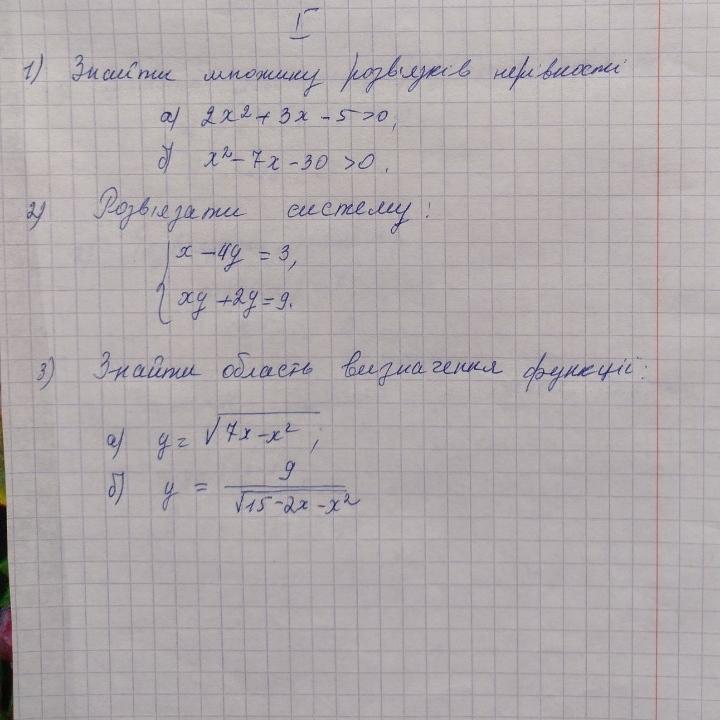 I
1) Знайти множину розв'язків нерівності
а) 2x² + 3x - 5 > 0,
б) x² - 7x - 30 > 0.
2) Розв'язати систему:
{ x - 4y = 3,
xy + 2y = 9.
3) Знайти область визначення функції:
а) y = √(7x - x²);
б) y = 9 / √(15 - 2x - x²)